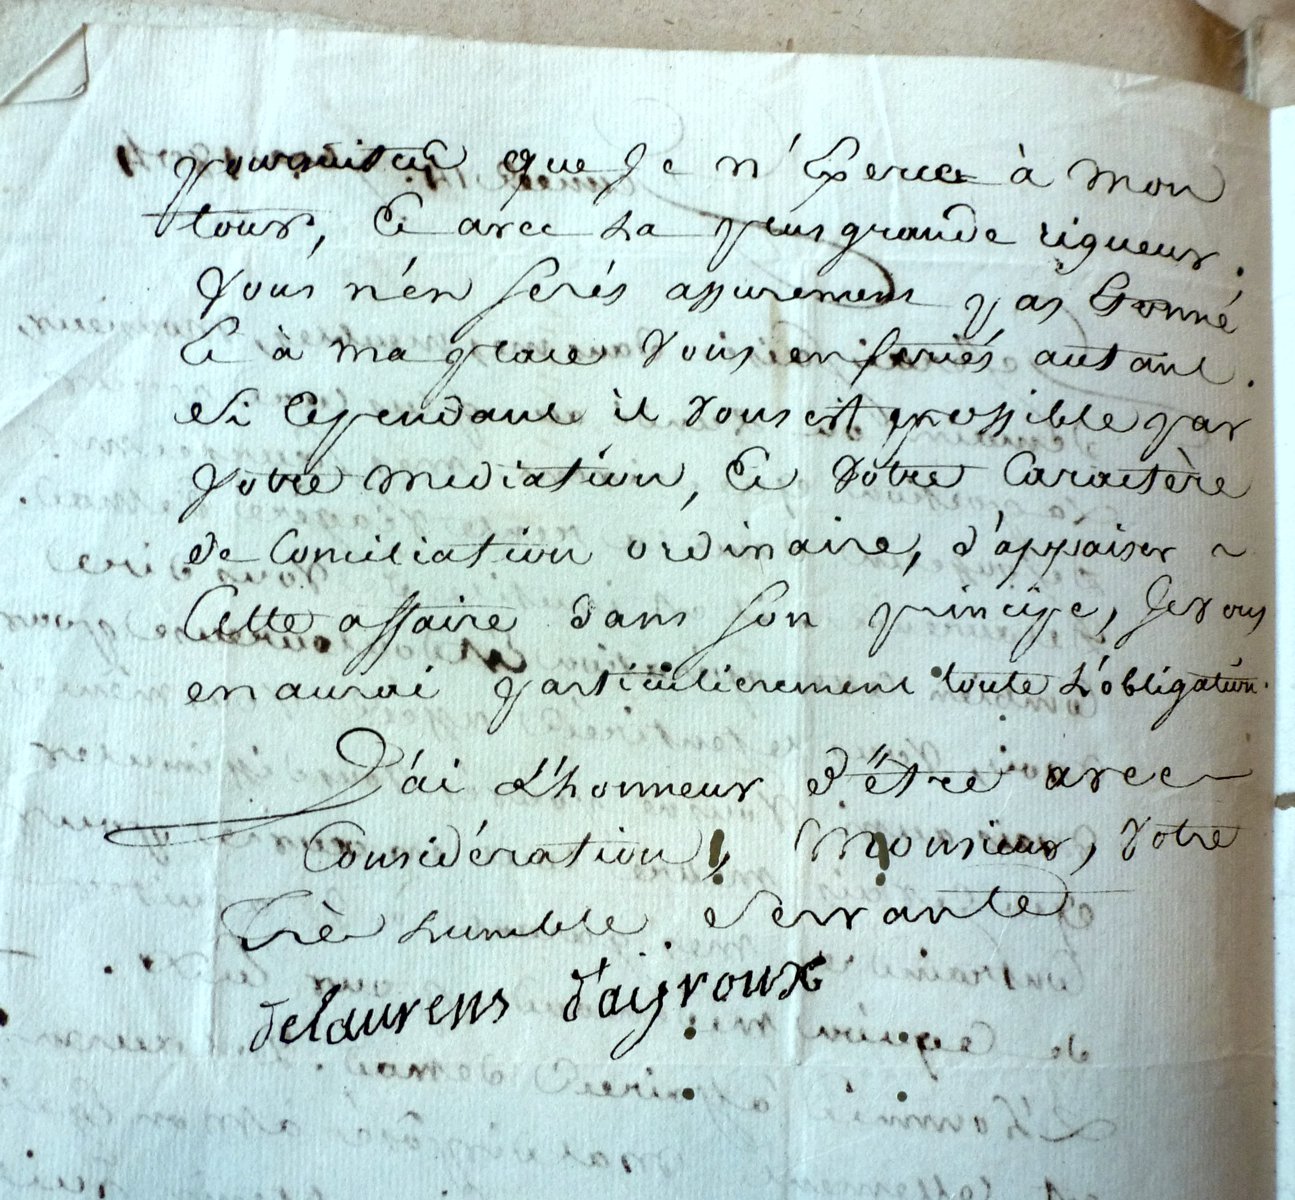 poursuites que Je n'Exerce à mon
tour, Et avec La plus grande rigueur.
Vous n'én serés assurement pas Etonné
Et à ma place vous en feriés autant.
Si Cependant il vous est possible par
Votre mediation, Et Votre Caractère
de Conciliation ordinaire, d'appaiser ~
Cette affaire dans son principe, Je vous
en aurai particulierement toute L'obligation.
J'ai L'honneur d'être avec
Considération, Monsieur, Votre
Très humble Servante
delaurens d'aigroux